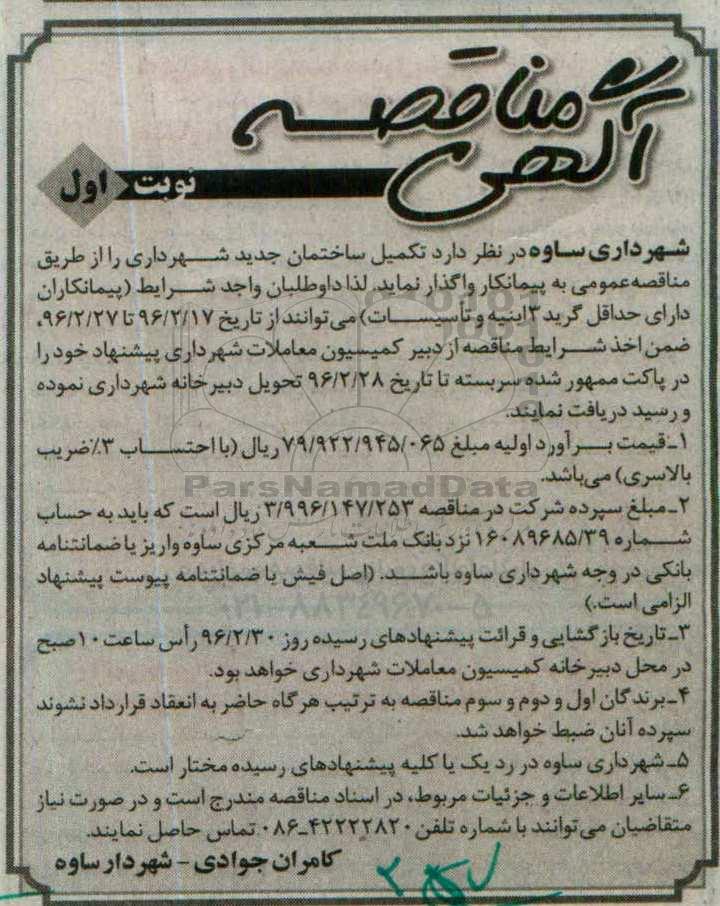 آگهی مناقصه
نوبت اول
شهرداری ساوه در نظر دارد تکمیل ساختمان جدید شهرداری را از طریق
مناقصه عمومی به پیمانکار واگذار نماید. لذا داوطلبان واجد شرایط (پیمانکاران
دارای حداقل گرید ۳ ابنیه و تأسیسات) می‌توانند از تاریخ ۹۶/۲/۱۷ تا ۹۶/۲/۲۷،
ضمن اخذ شرایط مناقصه از دبیر کمیسیون معاملات شهرداری پیشنهاد خود را
در پاکت ممهور شده سربسته تا تاریخ ۹۶/۲/۲۸ تحویل دبیرخانه شهرداری نموده
و رسید دریافت نمایند.
۱ـ قیمت برآورد اولیه مبلغ ۷۹/۹۲۲/۹۴۵/۰۶۵ ریال (با احتساب ۳٪ ضریب
بالاسری) می‌باشد.
ParsNamadData
۲ـ مبلغ سپرده شرکت در مناقصه ۳/۹۹۶/۱۴۷/۲۵۳ ریال است که باید به حساب
شماره ۱۶۰۸۹۶۸۵/۳۹ نزد بانک ملت شعبه مرکزی ساوه واریز یا ضمانتنامه
بانکی در وجه شهرداری ساوه باشد. (اصل فیش یا ضمانتنامه پیوست پیشنهاد
الزامی است.)
۰۲۱-۸۸۳۴۹۶۷۰-۵
۳ـ تاریخ بازگشایی و قرائت پیشنهادهای رسیده روز ۹۶/۲/۳۰ رأس ساعت ۱۰ صبح
در محل دبیرخانه کمیسیون معاملات شهرداری خواهد بود.
۴ـ برندگان اول و دوم و سوم مناقصه به ترتیب هرگاه حاضر به انعقاد قرارداد نشوند
سپرده آنان ضبط خواهد شد.
۵ـ شهرداری ساوه در رد یک یا کلیه پیشنهادهای رسیده مختار است.
۶ـ سایر اطلاعات و جزئیات مربوط، در اسناد مناقصه مندرج است و در صورت نیاز
متقاضیان می‌توانند با شماره تلفن ۴۲۲۲۲۸۲۰-۰۸۶ تماس حاصل نمایند.
کامران جوادی - شهردار ساوه